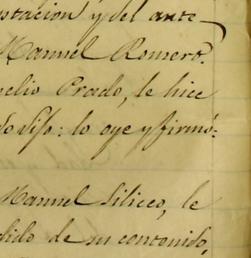 stacion y del ante-
Manuel Romero.
elio Prado, le hice
lo oye y firmó:
Manuel Siliceo, le
dido de su contenido,